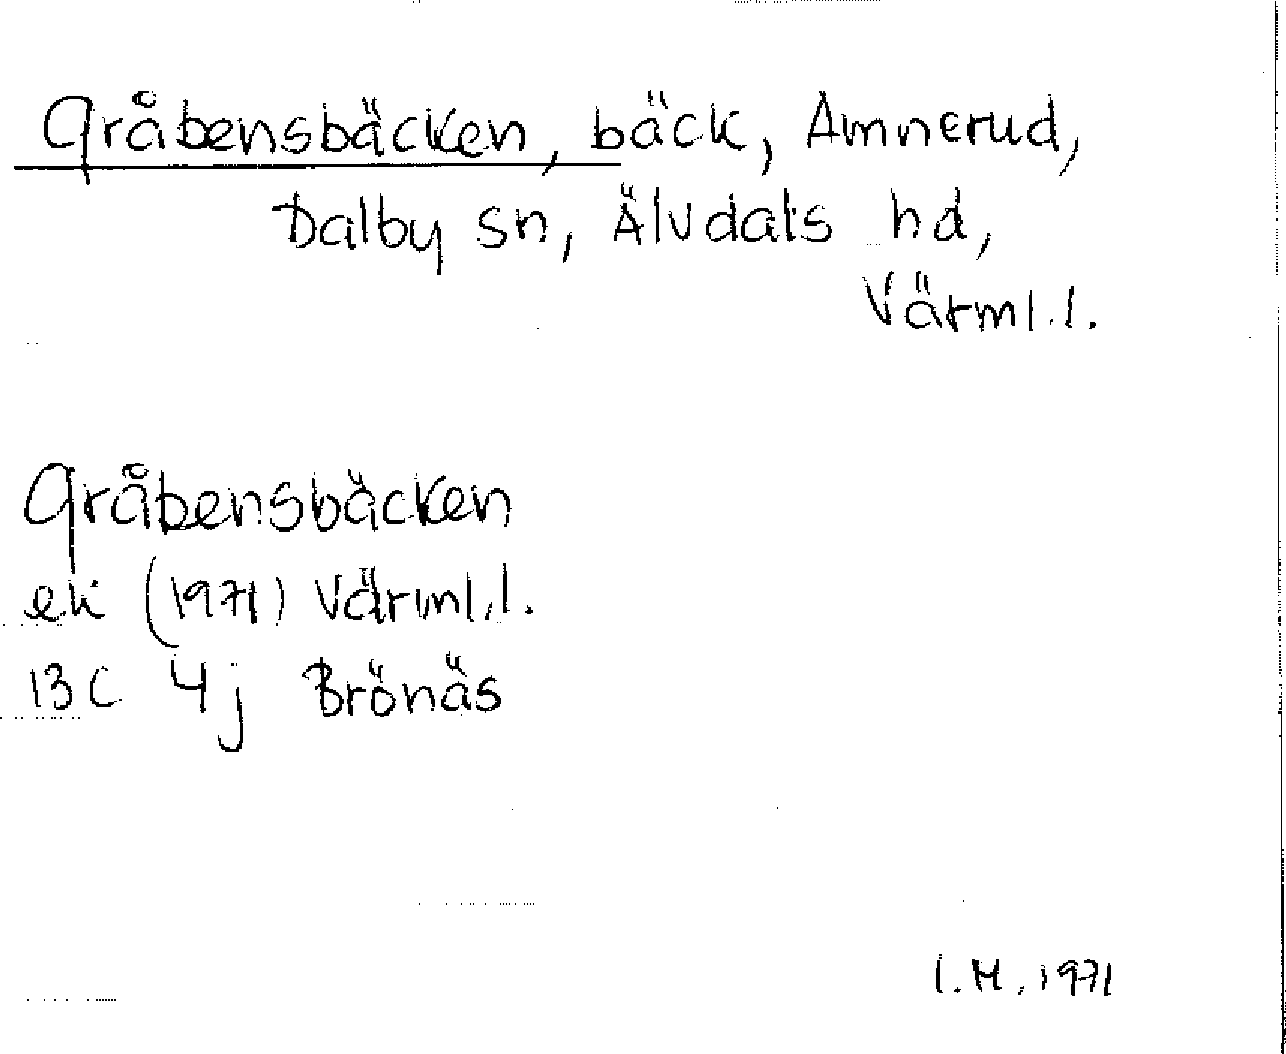 Gråbensbäcken, bäck, Amnerud,
Dalby sn, Älvdals hd,
Värml.l.
Gråbensbäcken
ek (1971) Värml.l.
13C 4j Brönäs
I.M. 1971